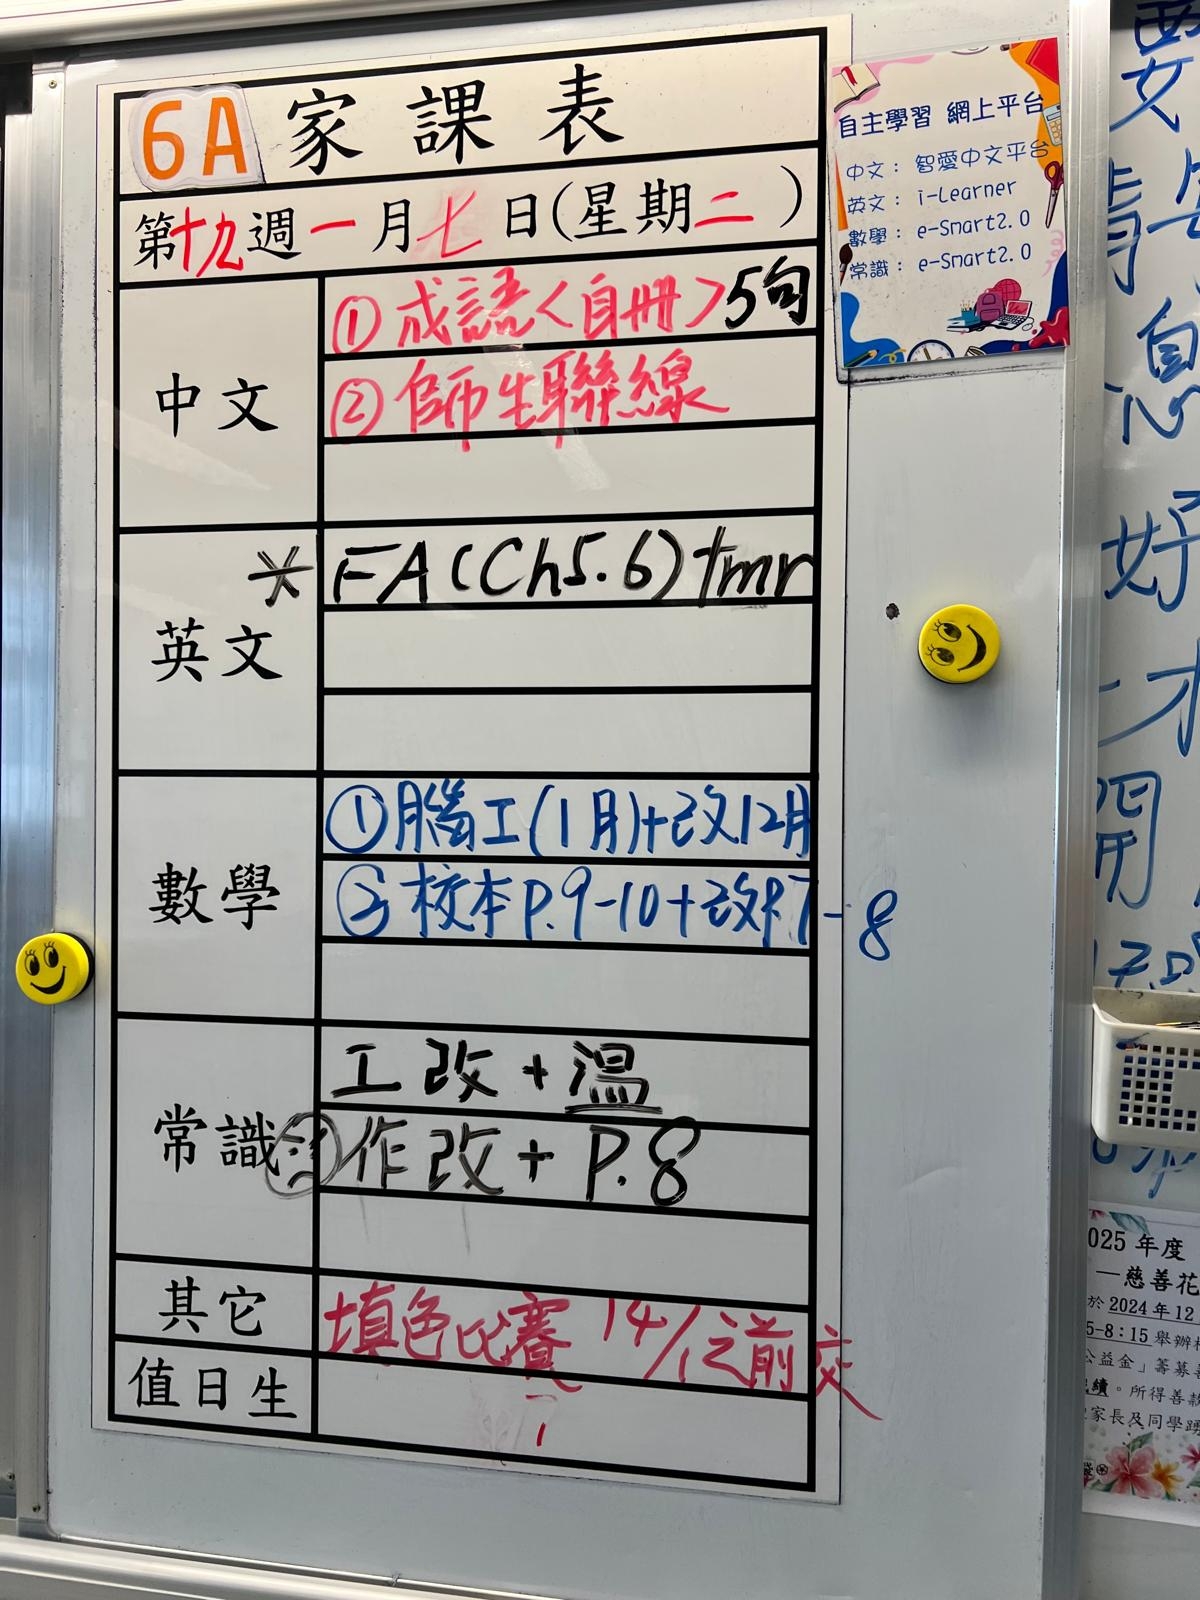 6A 家課表
第十九週一月七日(星期二)
中文
① 成語<自冊>5句
② 師生聯線
英文
* FA(Ch5.6)tmr
數學
① 腦工(1月)+改12月
② 校本P.9-10+改P.7-8
常識
工改+溫
作改+P.8
其它
填色比賽 14/1之前交
值日生
自主學習 網上平台
中文: 智愛中文平台
英文: i-Learner
數學: e-Smart2.0
常識: e-Smart2.0
息
好
才
開
025年度
—慈善花
於2024年12
5-8:15舉辦
公益金」籌募
績。所得善款
家長及同學踴